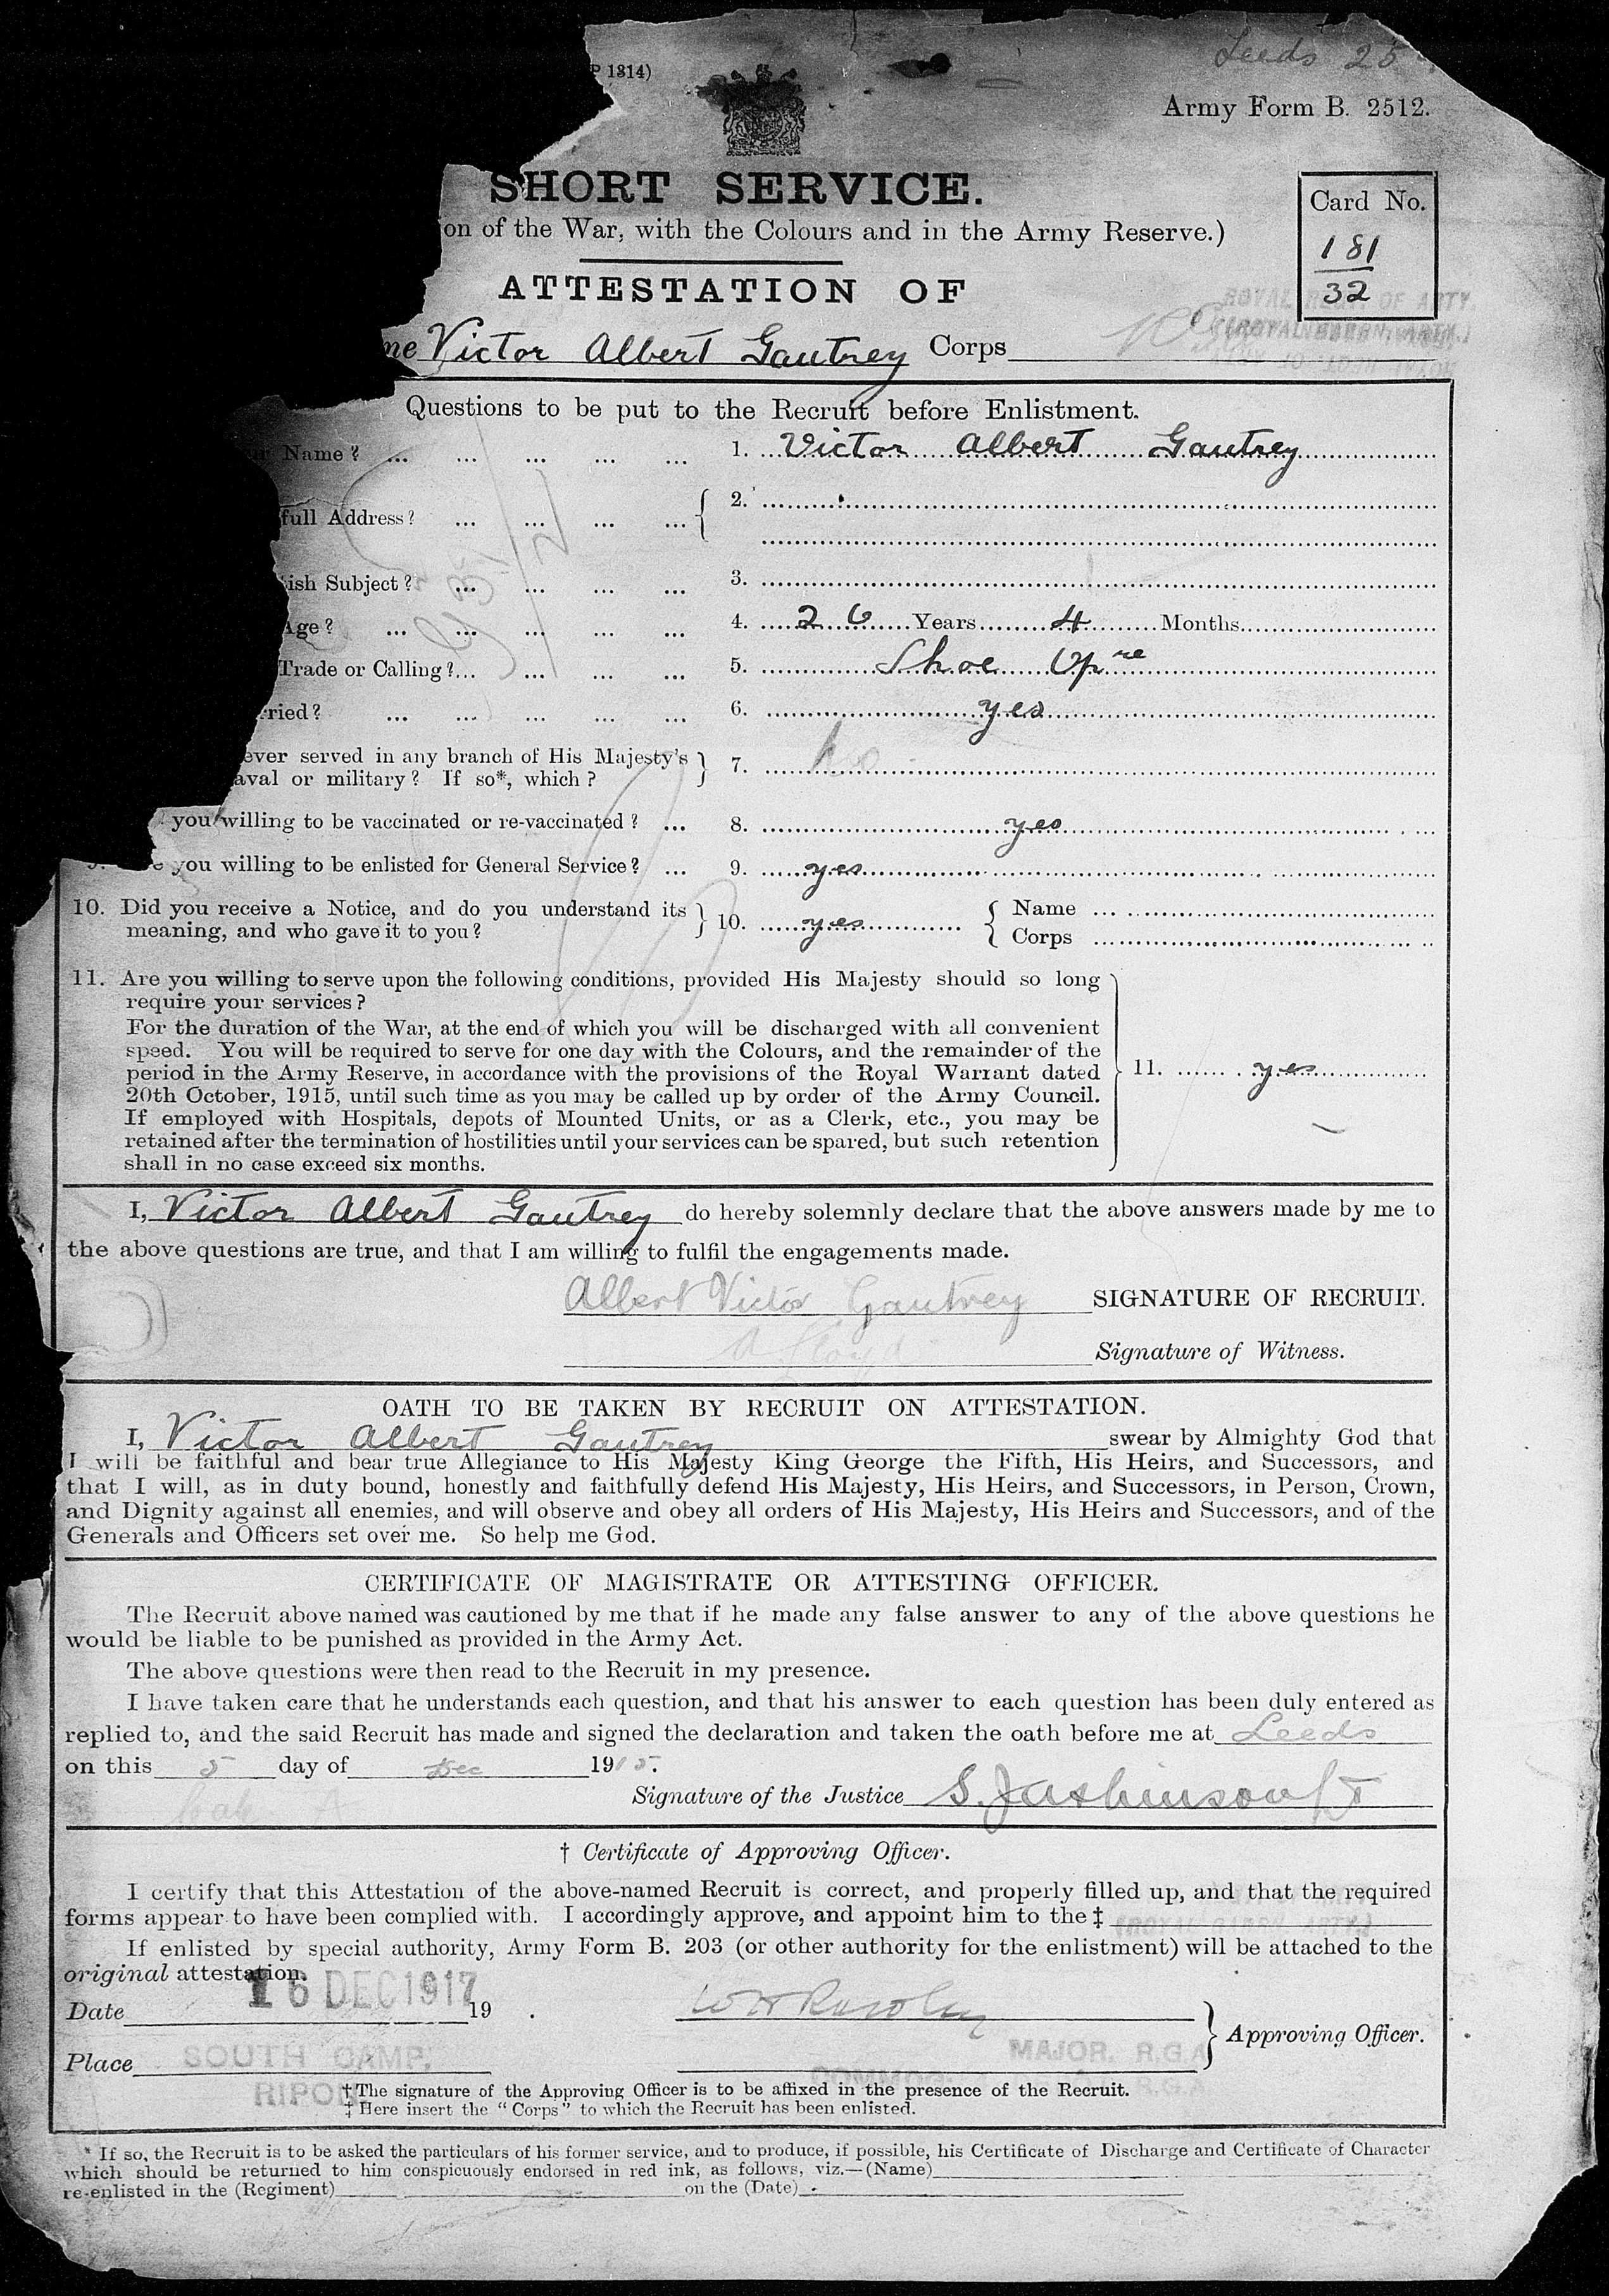 Leeds 25
P 1314)
Army Form B. 2512.
SHORT SERVICE.
on of the War, with the Colours and in the Army Reserve.)
Card No.
181
32
ATTESTATION OF
me Victor Albert Gautrey Corps
Questions to be put to the Recruit before Enlistment.
Name? ... ... ... ... ... 1. Victor Albert Gautrey
full Address? ... ... ... ... { 2.
ish Subject? ... ... ... ... 3.
Age? ... ... ... ... ... 4. 26 Years 4 Months
Trade or Calling?... ... ... ... 5. Shoe Opre
rried? ... ... ... ... ... 6. yes
ever served in any branch of His Majesty's
aval or military? If so*, which? } 7. no
you willing to be vaccinated or re-vaccinated? ... 8. yes
you willing to be enlisted for General Service? ... 9. yes
10. Did you receive a Notice, and do you understand its
meaning, and who gave it to you? } 10. yes { Name ...
Corps
11. Are you willing to serve upon the following conditions, provided His Majesty should so long
require your services?
For the duration of the War, at the end of which you will be discharged with all convenient
speed. You will be required to serve for one day with the Colours, and the remainder of the
period in the Army Reserve, in accordance with the provisions of the Royal Warrant dated
20th October, 1915, until such time as you may be called up by order of the Army Council.
If employed with Hospitals, depots of Mounted Units, or as a Clerk, etc., you may be
retained after the termination of hostilities until your services can be spared, but such retention
shall in no case exceed six months.
11. yes
I, Victor Albert Gautrey do hereby solemnly declare that the above answers made by me to
the above questions are true, and that I am willing to fulfil the engagements made.
Albert Victor Gautrey SIGNATURE OF RECRUIT.
Signature of Witness.
OATH TO BE TAKEN BY RECRUIT ON ATTESTATION.
I, Victor Albert Gautrey swear by Almighty God that
I will be faithful and bear true Allegiance to His Majesty King George the Fifth, His Heirs, and Successors, and
that I will, as in duty bound, honestly and faithfully defend His Majesty, His Heirs, and Successors, in Person, Crown,
and Dignity against all enemies, and will observe and obey all orders of His Majesty, His Heirs and Successors, and of the
Generals and Officers set over me. So help me God.
CERTIFICATE OF MAGISTRATE OR ATTESTING OFFICER.
The Recruit above named was cautioned by me that if he made any false answer to any of the above questions he
would be liable to be punished as provided in the Army Act.
The above questions were then read to the Recruit in my presence.
I have taken care that he understands each question, and that his answer to each question has been duly entered as
replied to, and the said Recruit has made and signed the declaration and taken the oath before me at Leeds
on this 5 day of Dec 1915.
Signature of the Justice
† Certificate of Approving Officer.
I certify that this Attestation of the above-named Recruit is correct, and properly filled up, and that the required
forms appear to have been complied with. I accordingly approve, and appoint him to the ‡
If enlisted by special authority, Army Form B. 203 (or other authority for the enlistment) will be attached to the
original attestation.
Date 16 DEC 1917 19 .
Approving Officer.
MAJOR. R.G.A
Place SOUTH CAMP,
RIPON
† The signature of the Approving Officer is to be affixed in the presence of the Recruit.
‡ Here insert the "Corps" to which the Recruit has been enlisted.
* If so, the Recruit is to be asked the particulars of his former service, and to produce, if possible, his Certificate of Discharge and Certificate of Character
which should be returned to him conspicuously endorsed in red ink, as follows, viz.—(Name)
re-enlisted in the (Regiment) on the (Date)